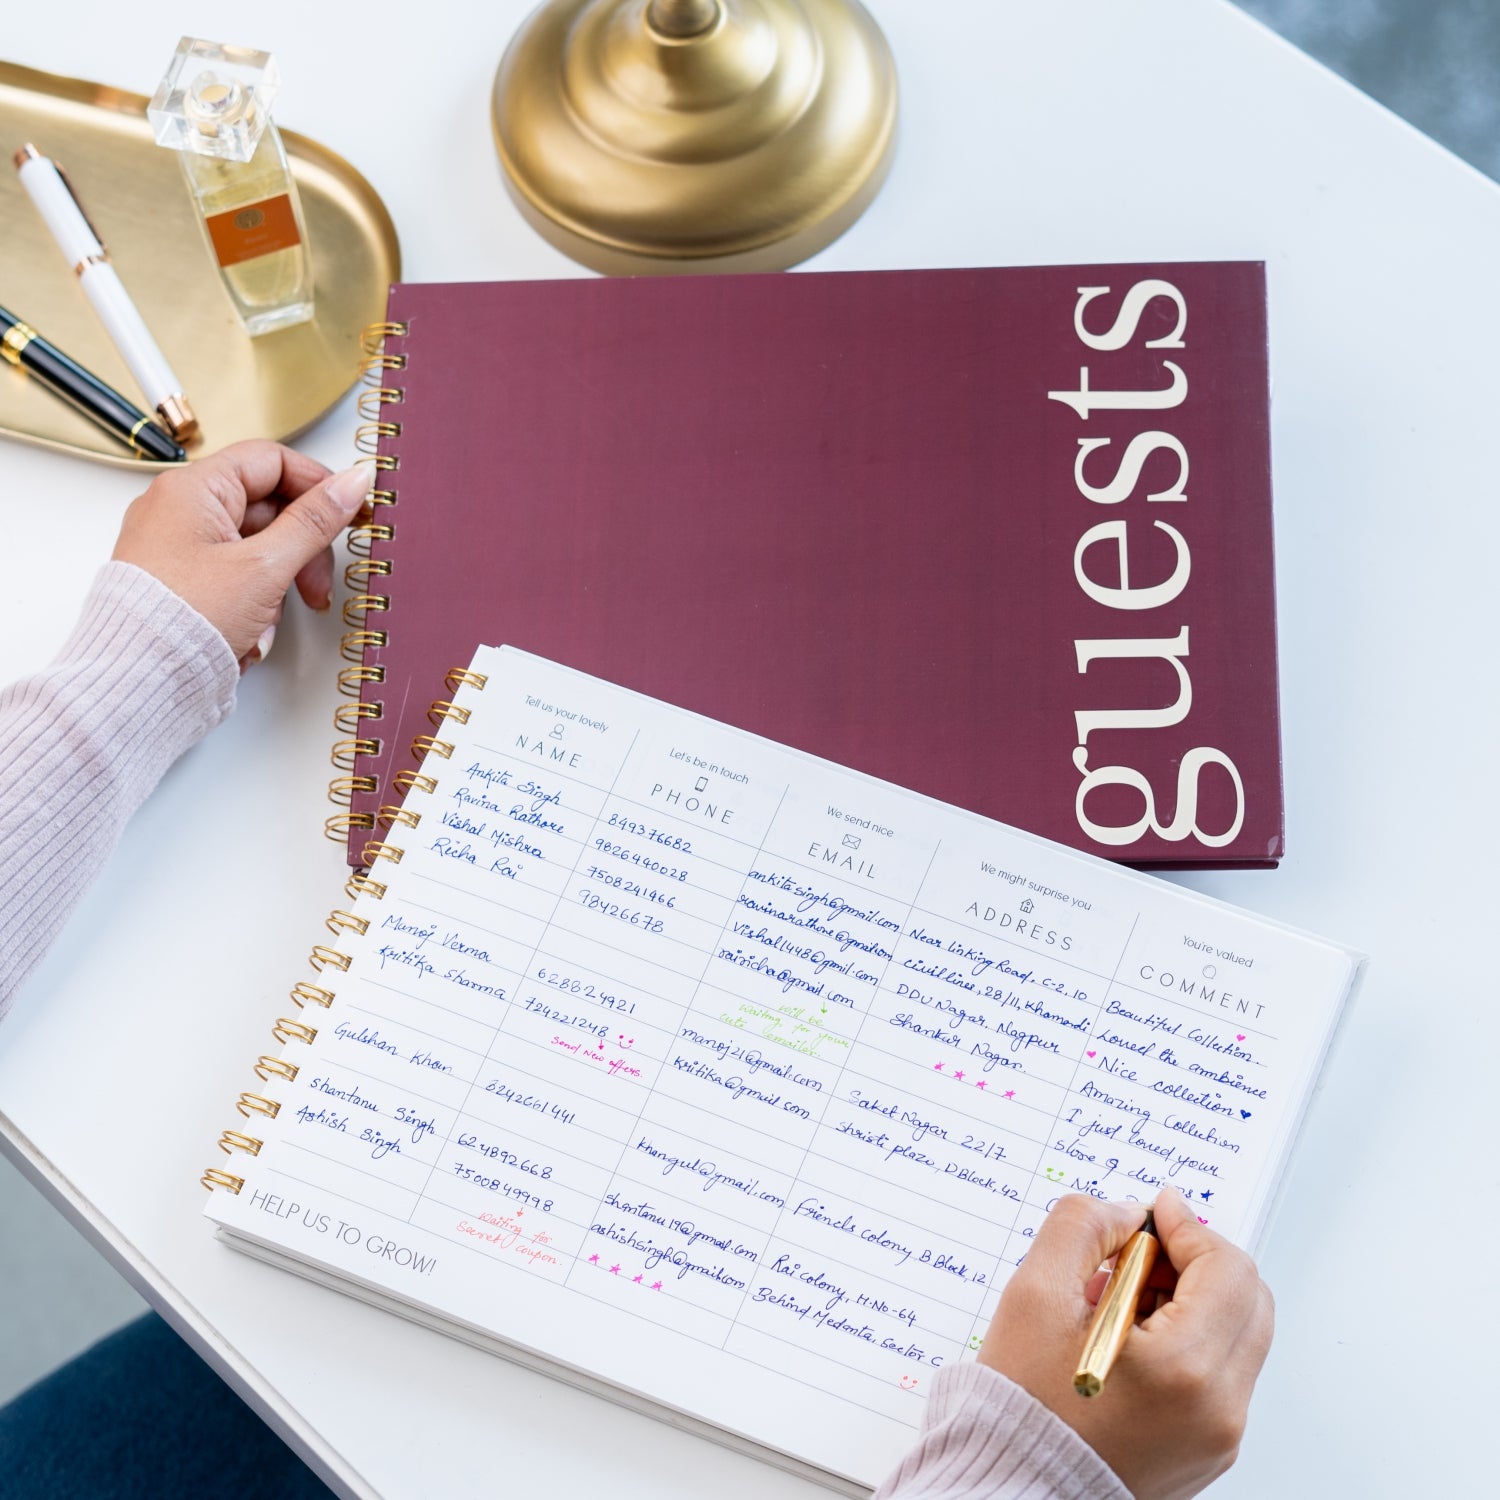 guests
Tell us your lovely
NAME
Let's be in touch
PHONE
We send nice
EMAIL
We might surprise you
ADDRESS
You're valued
COMMENT
Ankita Singh
849376682
ankitasingh@gmail.com
Near linKing Road, C-2, 10
Beautiful Collection..
Ravina Rathore
9826440028
ravinarathore@gmail.com
civil lines, 28/11, Khamardi
Loved the ambience
Vishal Mishra
7508241466
Vishal1448@gmil.com
DDU Nagar, Nagpur
Nice collection
Richa Rai
98426678
rairicha@gmail.com
Shankur Nagar.
Amazing Collection
will be
waiting for your
cute emailer.
I just loved your
store & designs
Manoj Verma
628824921
manoj21@gmail.com
Saket Nagar 22/7
Nice
Kritika Sharma
724221248
Kritika@gmail som
Shristi plazo, DBlock, 42
Send New offers.
Gulshan Khan
8242661441
Khangul@gmail.com
Friends colony B Block, 12
Shantanu Singh
624892668
shantanu19@gmail.com
Rai colony, H-No-64
Ashish Singh
7500849998
ashishsingh@gmail.com
Behind Medanta, Sector C
waiting for
Secret coupon.
HELP US TO GROW!